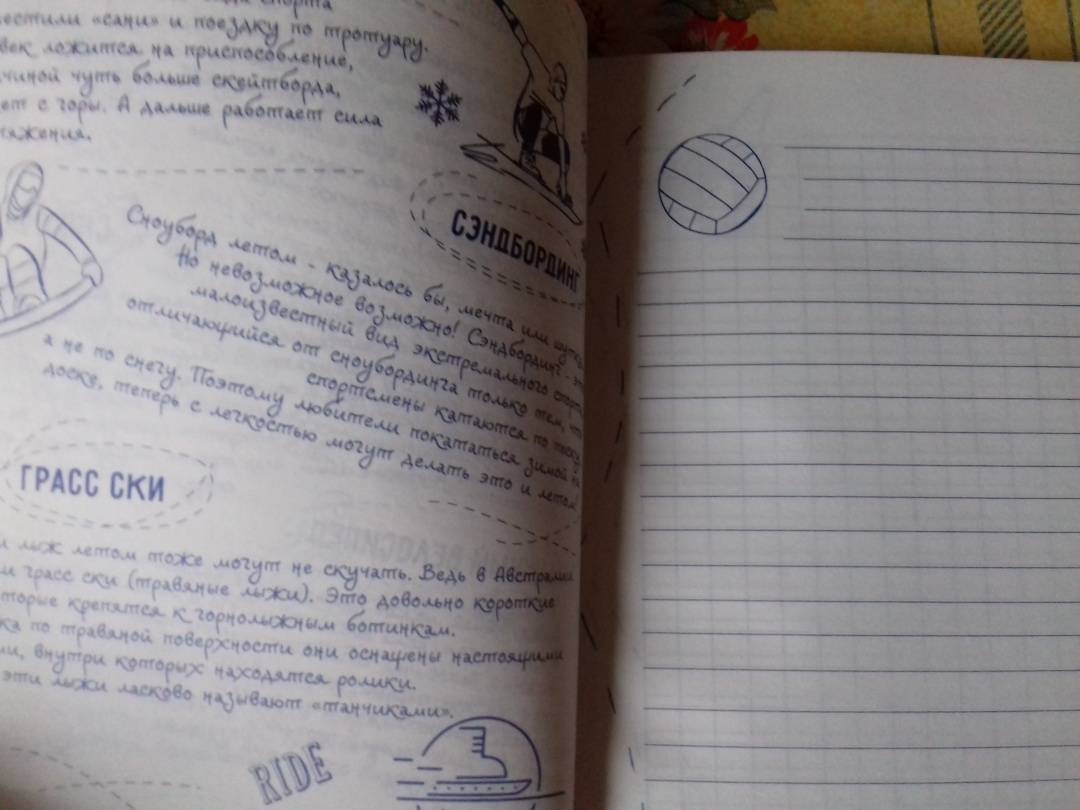 спорта
«сани» и поездку по тротуару.
ложится на приспособление,
чуть больше скейтборда,
с горы. А дальше работает сила
СЭНДБОРДИНГ
Сноуборд летом - казалось бы, мечта или шутка.
Но невозможное возможно! Сэндбординг - это
малоизвестный вид экстремального спорта,
отличающийся от сноубординга только тем, что
спортсмены катаются по песку,
а не по снегу. Поэтому любители покататься зимой на
доске, теперь с легкостью могут делать это и летом!
ГРАСС СКИ
лыж летом тоже могут не скучать. Ведь в Австралии
грасс ски (травяные лыжи). Это довольно короткие
крепятся к горнолыжным ботинкам.
по травяной поверхности они оснащены настоящими
внутри которых находятся ролики.
эти лыжи ласково называют «танчиками».
RIDE